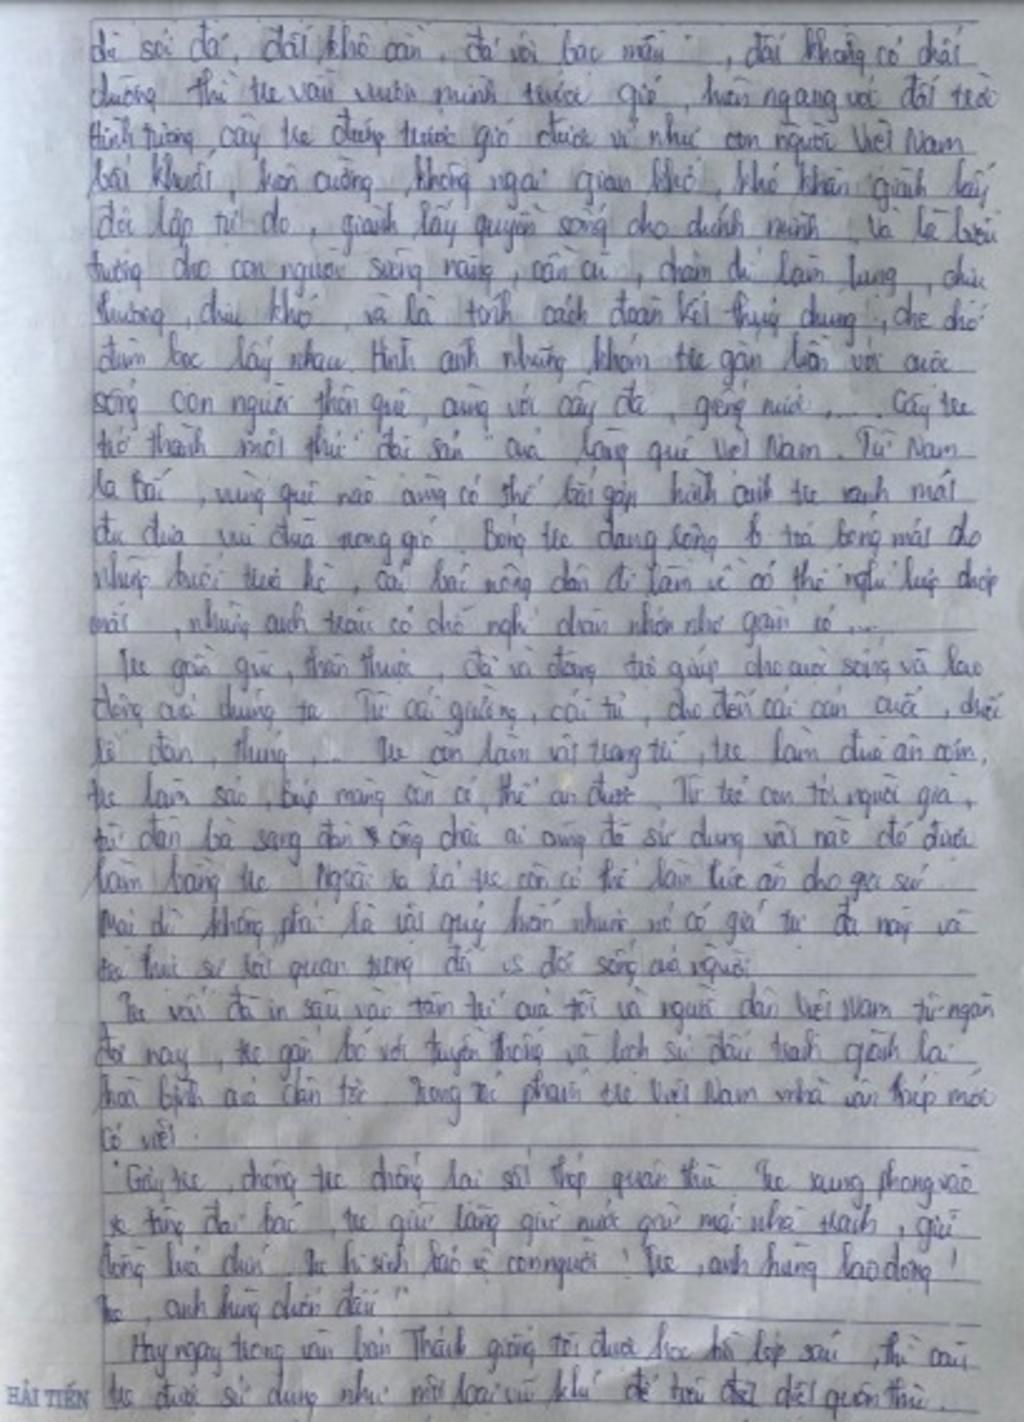 dù sỏi đá, đất khô cằn, đá vôi bạc màu, đất không có chất
dưỡng thì tre vẫn vươn mình trước gió, hiên ngang với đất trời
Hình tượng cây tre đứng trước gió được ví như con người Việt Nam
bất khuất, kiên cường, không ngại gian khổ, khó khăn giành lấy
độc lập tự do, giành lấy quyền sống cho chính mình. Và là biểu
tượng cho con người siêng năng, cần cù, chăm chỉ làm lụng, chịu
thương, chịu khó và là tính cách đoàn kết thủy chung, che chở
đùm bọc lấy nhau. Hình ảnh những khóm tre gắn liền với cuộc
sống con người thôn quê, cùng với cây đa, giếng nước .... Cây tre
trở thành một thứ "đặc sản" của làng quê Việt Nam. Từ Nam
ra Bắc, vùng quê nào cũng có thể bắt gặp hình ảnh tre xanh mát
đu đưa trong gió. Bóng tre đang rộng trả bóng mát cho
những buổi trưa hè, các bác nông dân đi làm về có thể nghỉ chợp
mắt, những anh trâu có chỗ nghỉ chân nhóp nhép gặm cỏ ...
Tre gần gũi, thân thuộc, đã và đang trợ giúp cho cuộc sống và lao
động của chúng ta. Từ cái giường, cái tủ, cho đến cái cán cuốc, chiếc
đan, thúng, ... Tre còn làm vật trang trí, tre làm đũa ăn cơm,
tre làm sáo, búp măng còn có thể ăn được. Từ trẻ con tới người già,
từ đàn bà sang đàn ông chắc ai cũng đã sử dụng vật nào đó được
làm bằng tre. Ngoài ra lá tre còn có thể làm thức ăn cho gia súc.
Mặc dù không phải là vật quý hiếm nhưng nó có giá trị đã nay và
thực sự rất quan trọng đối vs đời sống của người
Tre vốn đã in sâu vào tâm trí của tôi và người dân Việt Nam từ ngàn
đời nay, tre gắn bó với truyền thống và lịch sử đấu tranh giành lại
hòa bình của dân tộc. Trong tác phẩm tre Việt Nam nhà văn thép mới
có viết:
"Gậy tre, chông tre chống lại sắt thép quân thù. Tre xung phong vào
xe tăng đại bác, tre giữ làng giữ nước giữ mái nhà tranh, giữ
đồng lúa chín. Tre hi sinh bảo vệ con người! Tre, anh hùng lao động!
Tre, anh hùng chiến đấu"
Hay ngay trong văn bản Thánh gióng tôi được học hồi lớp sáu, thì cây
tre được sử dụng như một loại vũ khí để diệt quân thù.
HẢI TIẾN